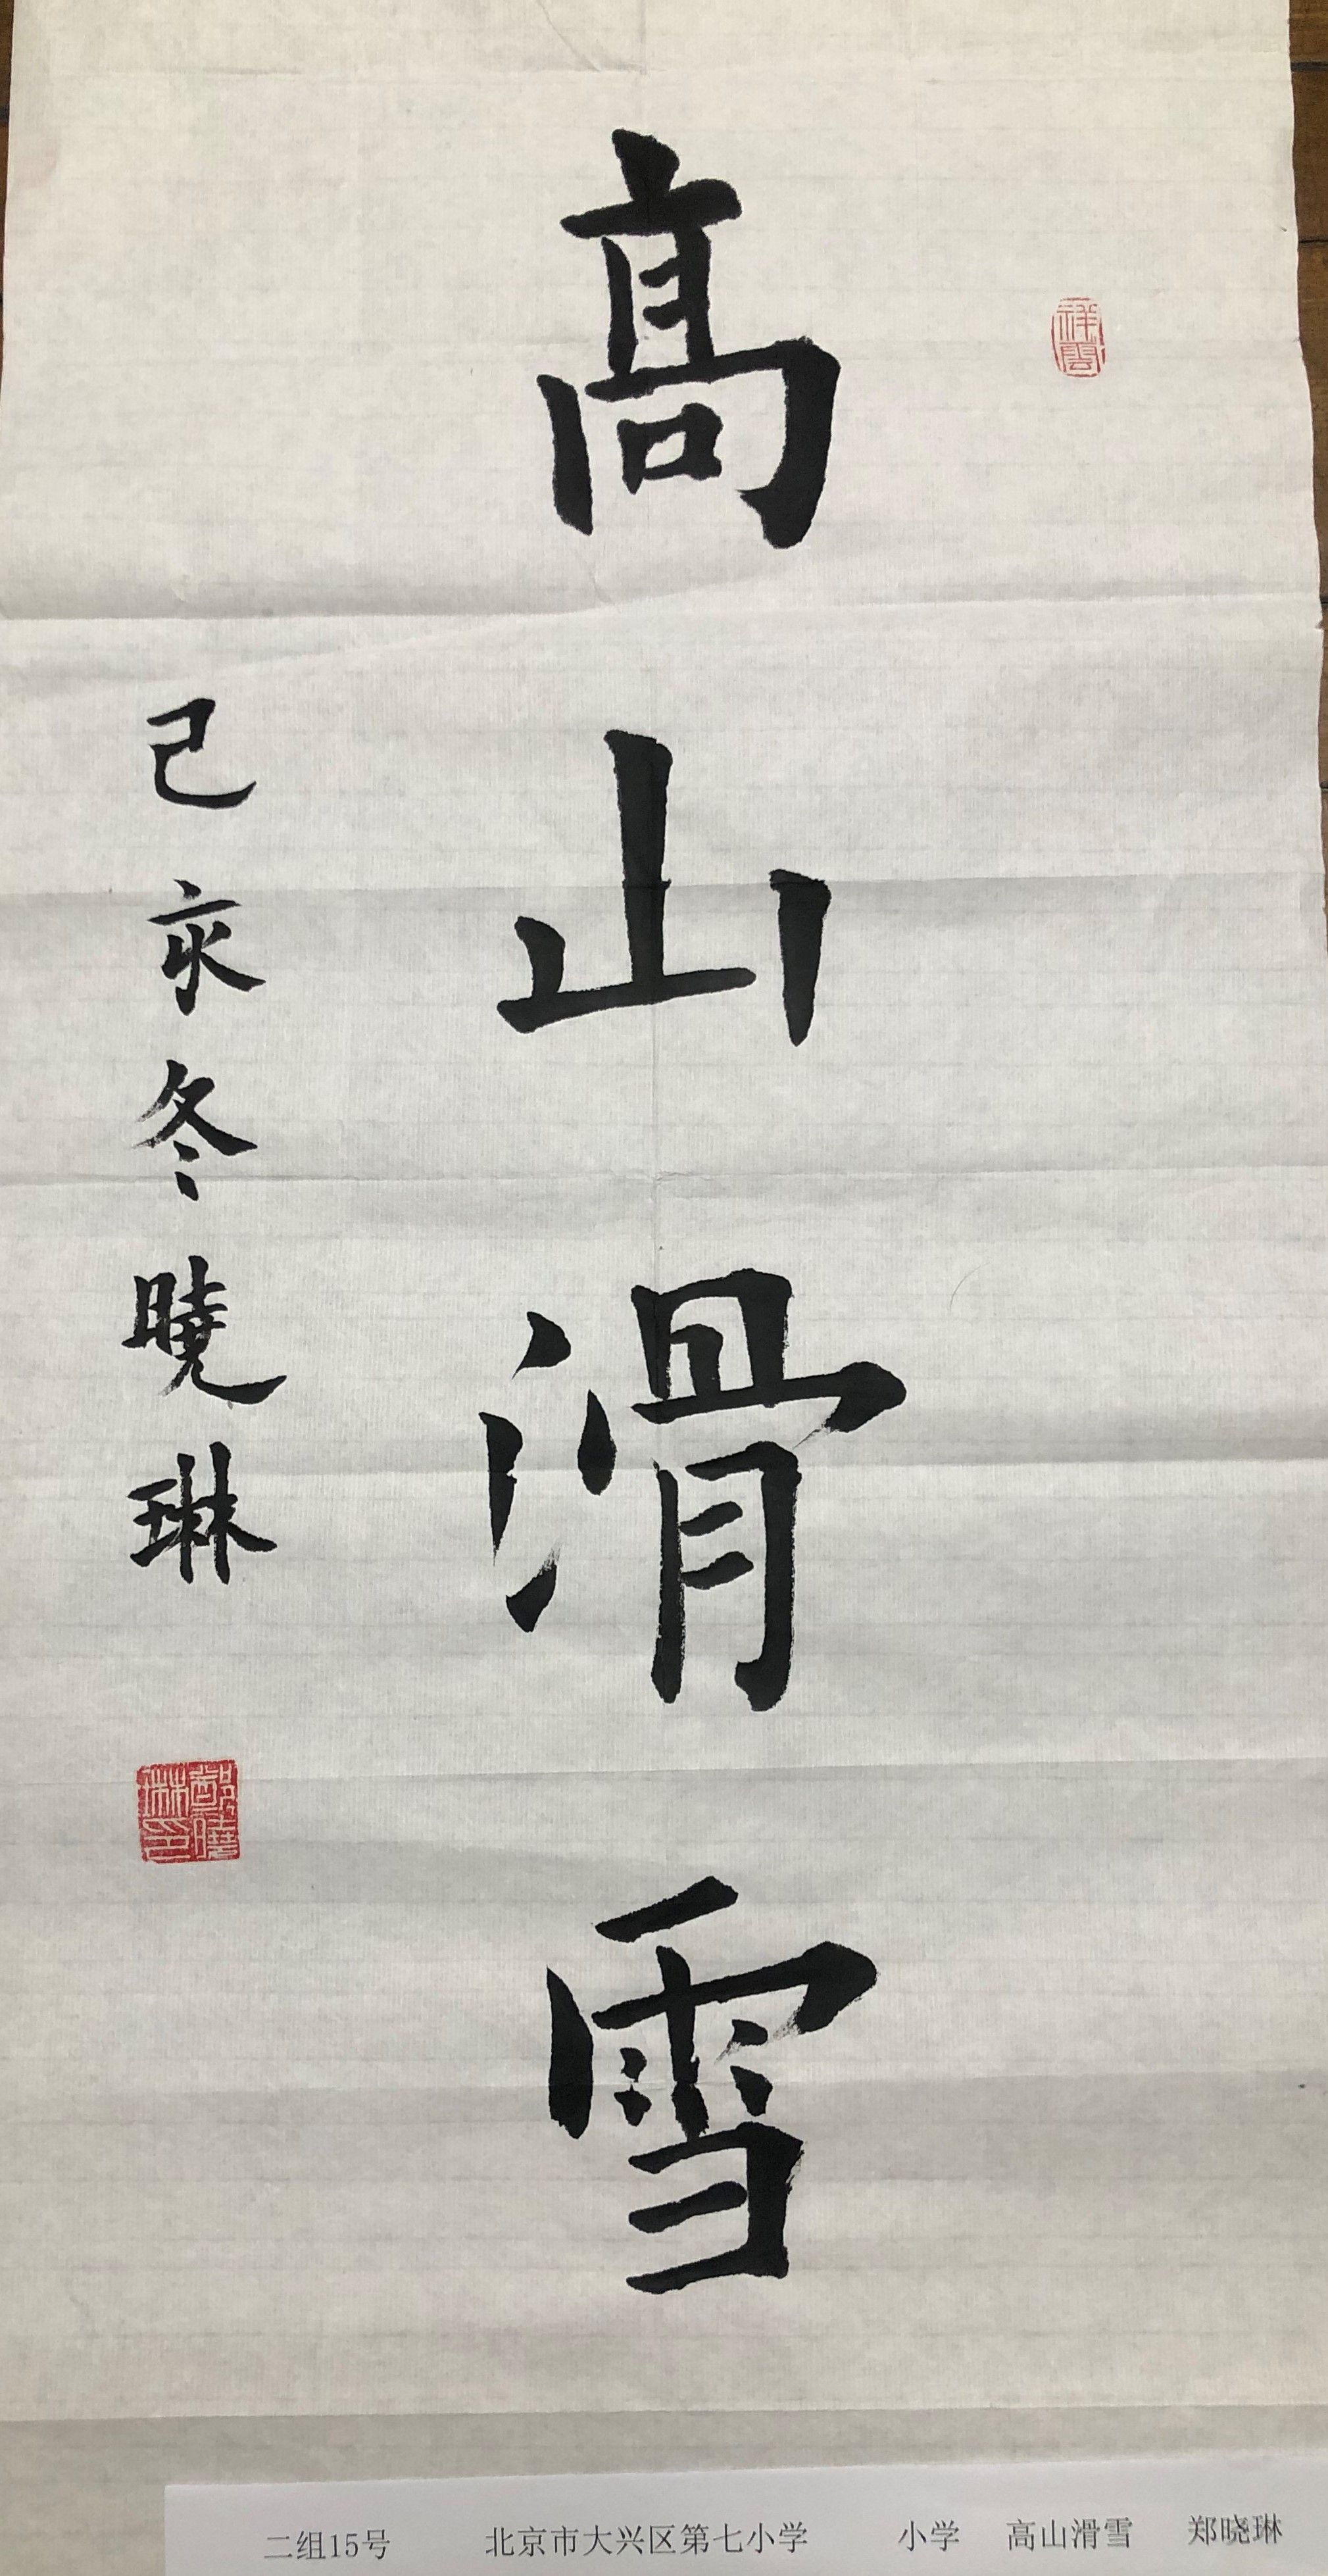 祥雲
髙山滑雪
己亥冬曉琳
鄭曉琳印
二组15号 北京市大兴区第七小学 小学 高山滑雪 郑晓琳